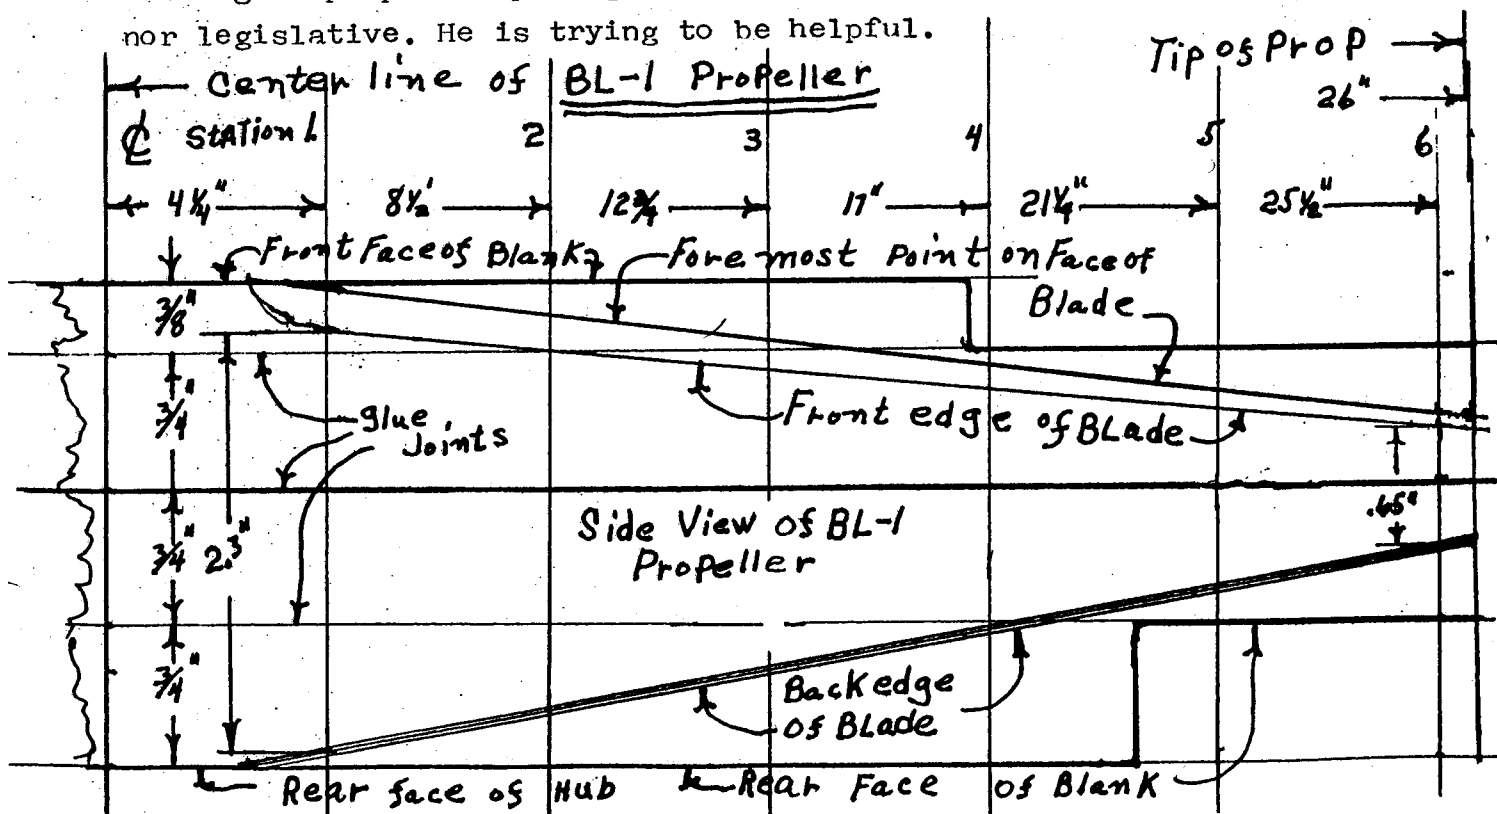 nor legislative. He is trying to be helpful.
Tip of Prop
Center line of BL-1 Propeller
26"
℄ Station 1 2 3 4 5 6
4 1/4" 8 1/2' 12 3/4 17" 21 1/4" 25 1/2"
Front Face of Blank
Foremost Point on Face of
Blade
3/8"
3/4"
Glue
Joints
Front edge of BLade
.65"
3/4" 2.3"
Side View of BL-1
Propeller
3/4"
Back edge
of Blade
Rear face of Hub
Rear Face of Blank